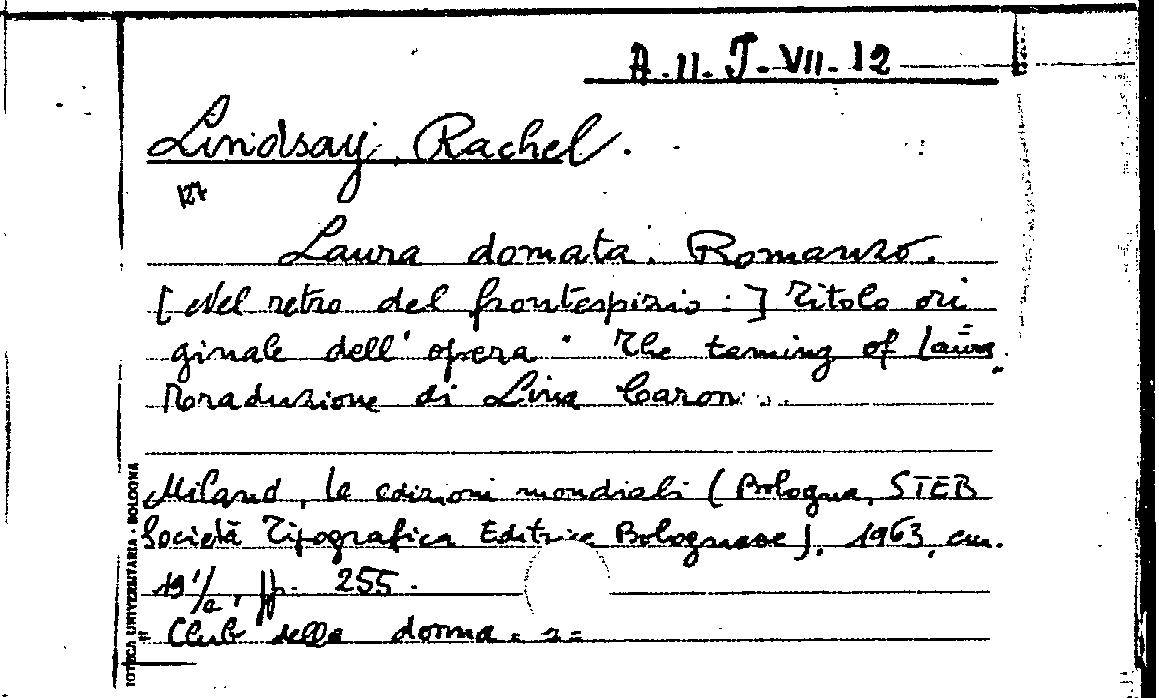 A. II. J. VII. 12
Lindsay, Rachel.
127
Laura domata. Romanzo.
[Nel retro del frontespizio:] Titolo ori
ginale dell'opera " The taming of Laura".
Traduzione di Lina Caron..
Milano, le edizioni mondiali (Bologna, STEB
Società Tipografica Editrice Bolognese), 1963, cm.
19 1/2, pp. 255.
Club della donna. 2=
IOTECA UNIVERSITARIA - BOLOGNA